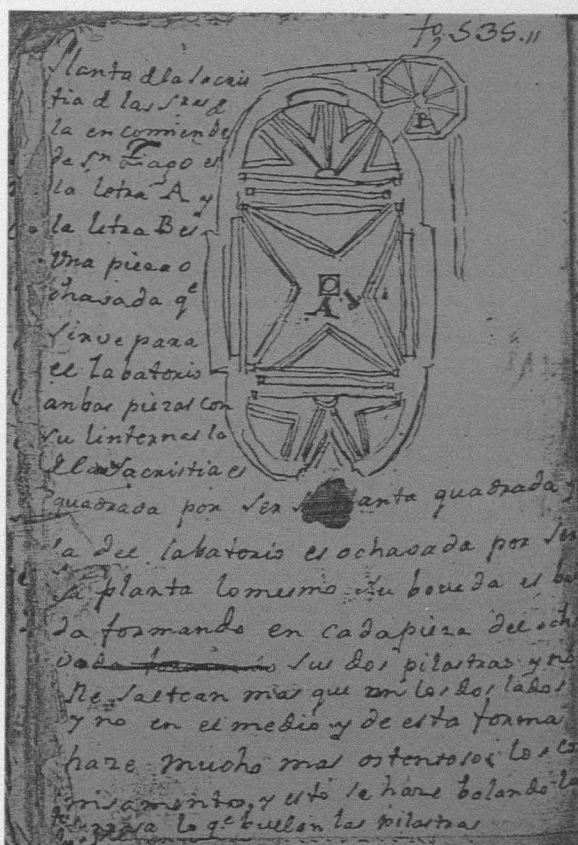 fo. 535.
Planta d la Sacris
tia d las Sras d
la encomienda
de Sn Tiago es
la letra A y
la letra B es
una pieza o
chavada qe
sirve para
el labatorio
anbas piezas con
su linternas la
d la Sacristia es
quadrada por ser su planta quadrada y
la del labatorio es ochavada por ser
su planta lo mesmo su boveda es
da formando en cada pieza del och
sus dos pilastras y no
se saltean mas que en los dos lados
y no en el medio y de esta forma
haze mucho mas ostentoso
y esto se haze bolando la
lo qe buelan las pilastras
B
A